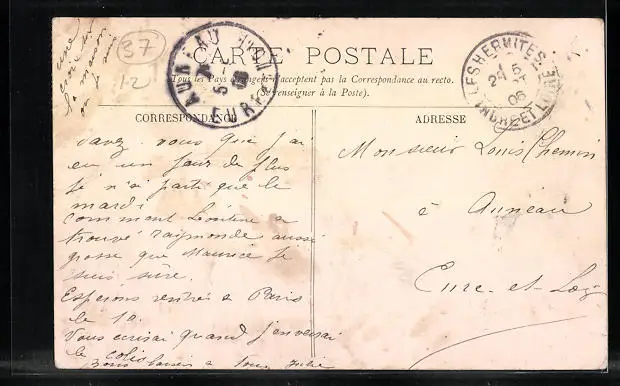 37
12
une
croix sur
la maison
où je suis
CARTE POSTALE
Tous les Pays étrangers n'acceptent pas la Correspondance au recto.
(Se renseigner à la Poste).
AUNEAU
5
06
EURE
LES HERMITES
24 5
06
INDRE-ET-LOIRE
CORRESPONDANCE
ADRESSE
savez vous que j'ai
eu un jour de plus
je n'ai parti que le
mardi
comment Léontine a
trouvé raymonde aussi
grosse que Maurice je
suis sûre.
Espérons rentrés à Paris
le 10
Vous écrirai quand j'enverrai
le colis
bons baisers à tous
Monsieur Louis Chemin
à Auneau
Eure-et-Loir